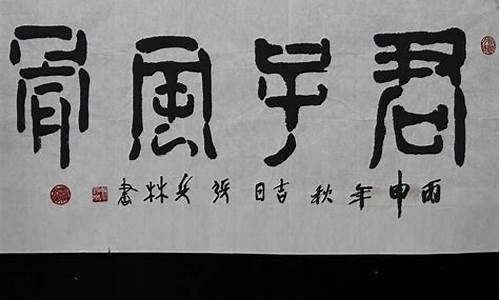 君子風骨
丙申年秋吉日张兵林书